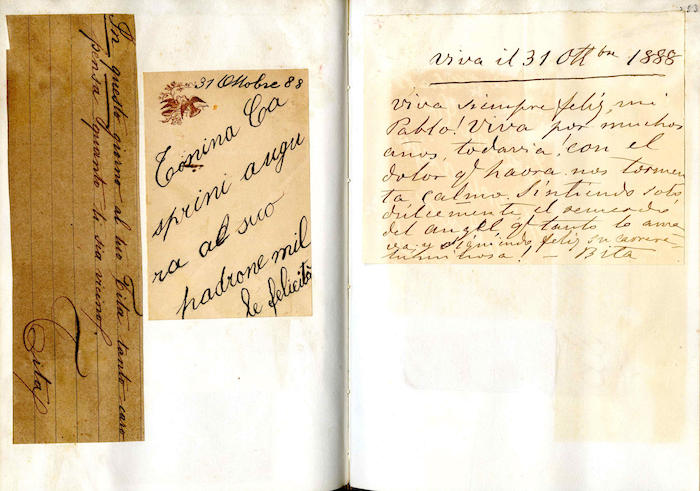 In questo giorno al tuo Tita tanto caro
pensa quanto ti sia vicino,
Tita
31 Ottobre 88
Tonina Ca
sprini augu
ra al suo
padrone mil
le felicità
Viva il 31 Ottbre 1888
Viva siempre feliz, mi
Pablo! Viva por muchos
años, todavia, con el
dolor qe haora nos tormen
ta calmo. Sintiendo solo
dulcemente el
del angel qe tanto lo ama
va y siguiendo, feliz su carrera
luminosa! — Bita